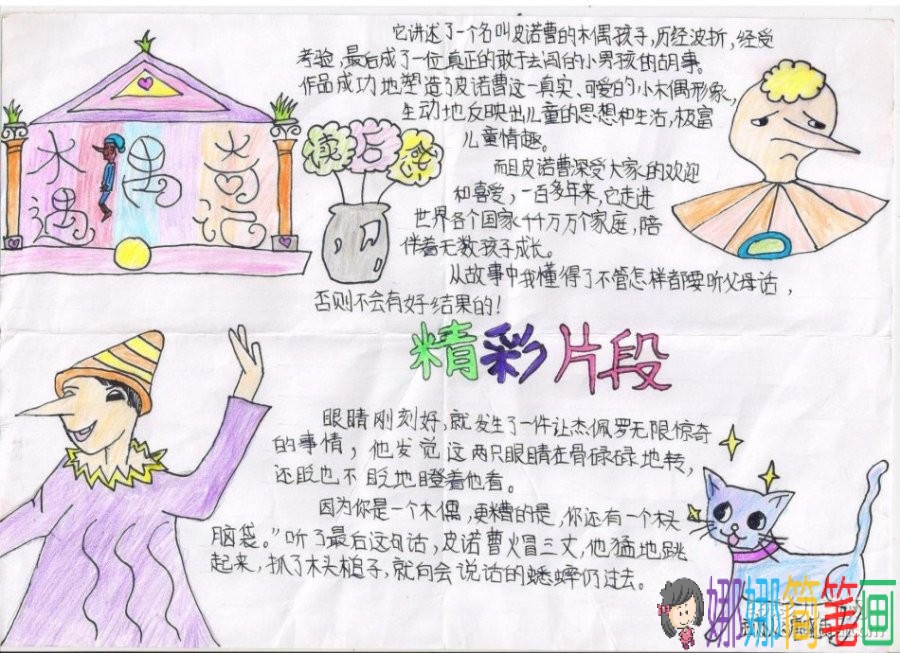 木偶奇遇记
读后感
它讲述了一个名叫皮诺曹的木偶孩子,历经波折,经受
考验,最后成了一位真正的敢于去闯的小男孩的故事。
作品成功地塑造了皮诺曹这一真实、可爱的小木偶形象,
生动地反映出儿童的思想和生活,极富
儿童情趣。
而且皮诺曹深受大家的欢迎
和喜爱,一百多年来,它走进
世界各个国家千千万万个家庭,陪
伴着无数孩子成长。
从故事中我懂得了不管怎样都要听父母话,
否则不会有好结果的!
精彩片段
眼睛刚刻好,就发生了一件让杰佩罗无限惊奇
的事情,他发觉这两只眼睛在骨碌碌地转,
还眨也不眨地瞪着他看。
因为你是一个木偶,更糟的是,你还有一个木头
脑袋。”听了最后这句话,皮诺曹火冒三丈,他猛地跳
起来,抓了木头槌子,就向会说话的蟋蟀仍过去。
娜娜简笔画